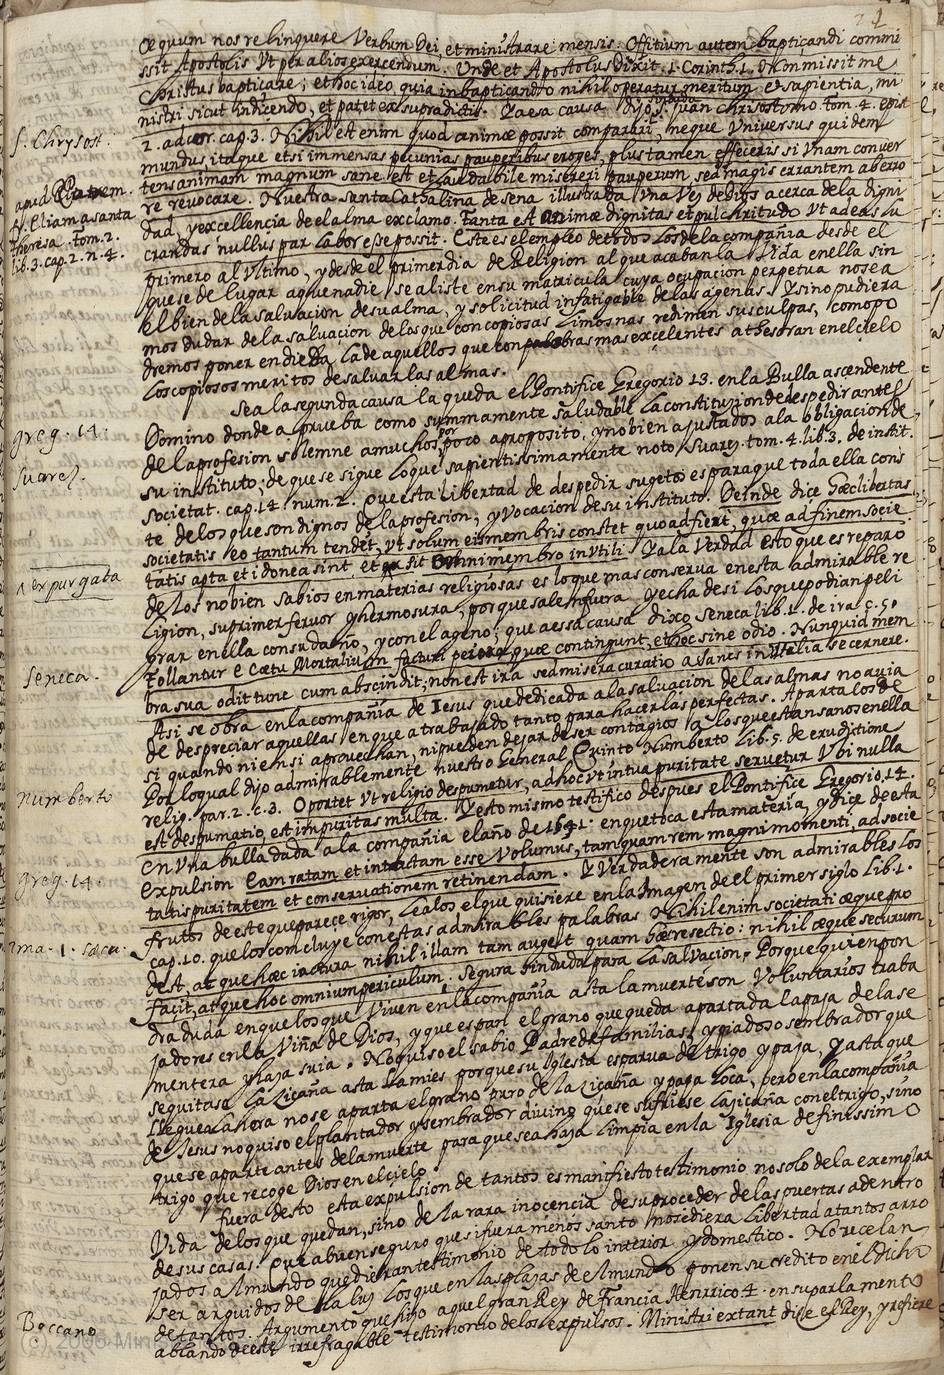 21
æquum nos relinquere Verbum Dei, et ministrare mensis. Offitium autem baptiçandi commi
ssit Apostolis Vt per alios exercendum. Unde et Apostolus dixit. 1. Corinth. 1. Non missit me
Christus bapticare; et hoc ideo, quia in bapticando nihil operatur meritum et sapientia, mi
nistri sicut indicendo, et patet ex supradictis. Y a esa causa dijo S. Juan Chrisostomo tom. 4. epist
2. ad cor. cap. 3. Nihil est enim quod animæ possit comparari, neque Vniversus quidem
mundus, itaque etsi immensas pecunias pauperibus eroges, plus tamen effeceris si Vnam conver
tens animam magnum sane est et Laudabile misereri pauperum sed magis errantem aberro
re revocare. Nuestra santa Catalina de sena illustrada Vna Vez de dios acerca de la digni
dad, y excellencia de el alma exclamo. Tanta est animæ dignitas et pulchritudo Vt ad eas lu
crandas nullus par labor esse possit. Este es el empleo de todos los de la compañia desde el
primero al Vltimo, y desde el primer dia de Religion al que acaban la Vida en ella sin
que se de lugar a que nadie se aliste en su matricula cuya ocupacion perpetua no sea
el bien de la salvacion de su alma, y solicitud infatigable de las agenas. Y si no pudiera
mos dudar de la salvacion de los que con copiosas Limosnas redimen sus culpas, como po
dremos poner en dieda la de aquellos que con palabras mas excelentes atesoran en el cielo
los copiosos meritos de saluar las almas.
Sea la segunda causa la queda el Pontifice Gregorio 13. en la Bulla ascendente
Domino donde aprueba como summamente saludable la constituzion de despedir antes
de la profesion solemne a muchos por poco aproposito, y no bien ajustados a la obligacion de
su instituto; de que se sigue lo que sapientissimamente noto Suarez. tom. 4. lib. 3. de instit.
societat. cap. 14. num. 2. que esta libertad de despedir sugetos es para que toda ella cons
te de los que son dignos de la profesion, y vocacion de su instituto. Deinde dice hæc libertas
societatis eo tantum tendit, Vt solum eius membris constet quoad fieri, quæ ad finem socie
tatis apta et idonea sint, et expurgata sit omni membro inVtili. Y a la Verdad esto que es reparo
de los no bien sabios en materias religiosas es lo que mas conserva en esta admirable re
ligion, su primer fervor y hermosura, porque sale fuera y echa de si los que podian peli
grar en ella con su daño, y con el ageno; que a essa causa dixo Seneca lib. 1. de ira c. 5.
Tollantur e Cætu Mortalium facturi peiora quæ contingunt, et hoc sine odio. Nunquid mem
bra sua odit tunc cum abscindit; non est ira sed misera curatio
Asi se obra en la compañia de Iesus que dedicada a la saluacion de las almas no auia
de despreciar aquellas en que a trabajado tanto para hacerlas perfectas. Aparta los de
si quando ni en si aprovechan, ni pueden dejar de ser contagios a los que estan sanos en ella
Por lo qual dijo admirablemente nuestro General Quinto Numberto Lib. 5. de eruditione
relig. par. 2. c. 3. Oportet Vt religio despumetur, ad hoc Vt in tua puritate servetur Vbi nulla
est despumatio, est impuritas multa. Y esto mismo testifico despues el Pontifice Gregorio 14.
en Vna bulla dada a la compañia el año de 1641. en que toca esta materia, y dice de esta
expulsion Eam ratam et intactam esse Volumus, tamquam rem magni momenti, ad socie
tatis puritatem et conservationem retinendam. Y Verdaderamente son admirables los
frutos de este que parece rigor, lealos el que quisiere en la Imagen de el primer siglo Lib. 1.
cap. 10. que los concluye con estas admirables palabras Nihil enim societati æque pro
dest, atque hæc iactura nihil illam tam auget quam hæc resectio: nihil æque securum
facit, atque hoc omnium periculum. Segura sin duda para la salvacion. Porque quien pon
dra duda en que los que Viven en la compañia asta la muerte son Voluntarios traba
jadores en la Viña de Dios, y que es pan el grano que queda apartada la paja de la se
mentera y haja suia. No quiso el sabio Padre de familias, y piadoso sembrador que
se quitase la Ziçaña asta la mies porque su Iglesia es parua de trigo y paja, y asta que
llegue la hora no se aparta el grano puro de la Ziçaña y paja loca, pero en la compañia
de Jesus no quiso el plantador y sembrador divino que se sufriese la ziçaña con el trigo, sino
que se aparte antes de la muerte para que sea haja limpia en la Iglesia de finissimo
trigo que recoge Dios en el cielo.
fuera desto esta expulsion de tantos es manifiesto testimonio no solo de la exemplar
Vida de los que quedan, sino de la rara inocencia de su proceder de las puertas adentro
de sus casas. Que a buen seguro que si fuera menos santo no se diera libertad a tantos arro
jados al mundo que dieran testimonio de todo lo interior y domestico. No recelan
ser arguidos de la luz los que en las plazas de el mundo ponen su credito en el dicho
de tantos. Argumento que hizo aquel gran Rey de Francia Henrrico 4. en su parlamento
ablando de este irrefragable testimonio de los expulsos. Ministri extant dice el Rey, y refiere
S. Chrysost.
apud
fr. Eliam a santa
Theresa. tom. 2.
lib. 3. cap. 2. n. 4.
greg. 14.
Suarez.
expurgata
Seneca.
Numberto
greg. 14.
ima. 1. sæcu.
Boccano